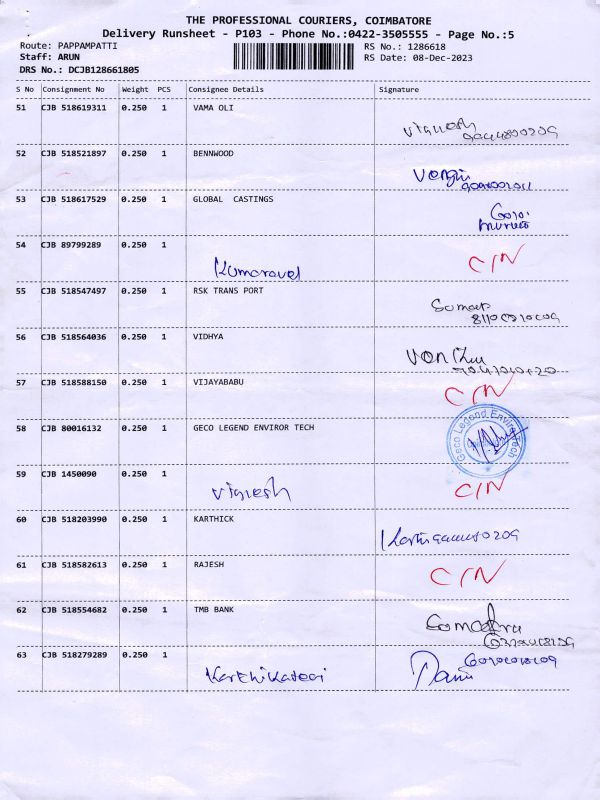 THE PROFESSIONAL COURIERS, COIMBATORE
Delivery Runsheet - P103 - Phone No.:0422-3505555 - Page No.:5
Route: PAPPAMPATTI
RS No.: 1286618
Staff: ARUN
RS Date: 08-Dec-2023
DRS No.: DCJB128661805
S No Consignment No Weight PCS Consignee Details Signature
51 CJB 518619311 0.250 1 VAMA OLI
Vignesh
52 CJB 518521897 0.250 1 BENNWOOD
53 CJB 518617529 0.250 1 GLOBAL CASTINGS
54 CJB 89799289 0.250 1
Kumaravel
C/N
55 CJB 518547497 0.250 1 RSK TRANS PORT
56 CJB 518564036 0.250 1 VIDHYA
57 CJB 518588150 0.250 1 VIJAYABABU
C/N
58 CJB 80016132 0.250 1 GECO LEGEND ENVIROR TECH
Geco Legend Enviro Tech
59 CJB 1450090 0.250 1
Vignesh
C/N
60 CJB 518203990 0.250 1 KARTHICK
61 CJB 518582613 0.250 1 RAJESH
C/N
62 CJB 518554682 0.250 1 TMB BANK
63 CJB 518279289 0.250 1